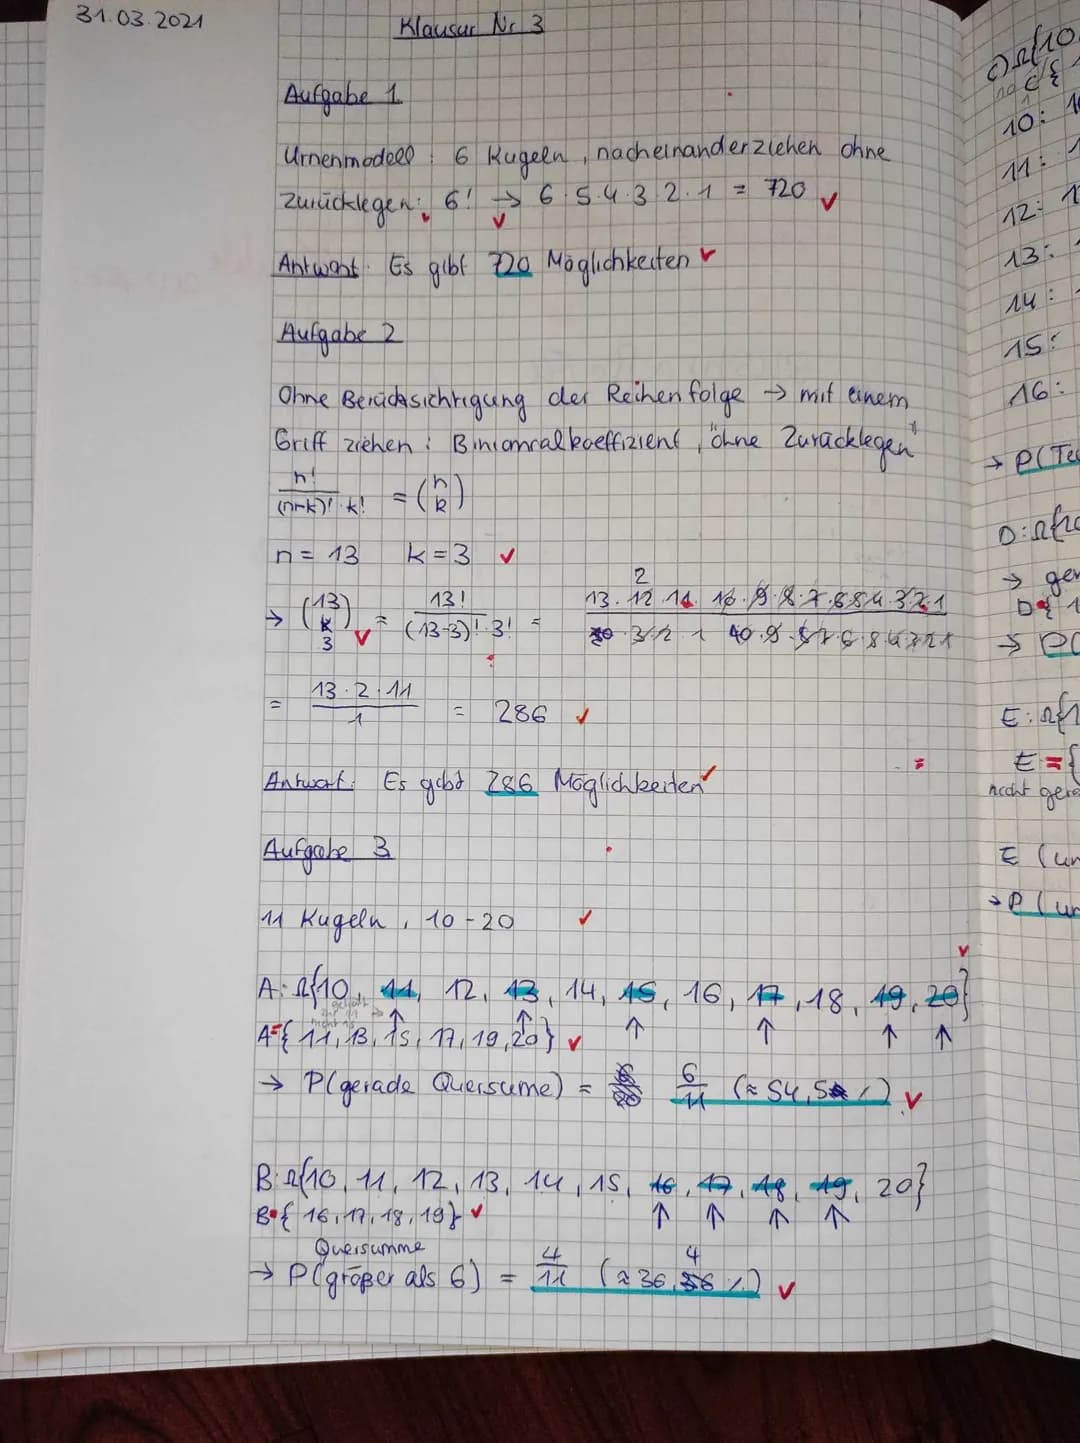 31.03.2021
Klausur Nr 3
Aufgabe 1
Urnenmodell : 6 Kugeln, nacheinanderziehen ohne
Zurücklegen: 6! → 6·5·4·3·2·1 = 720
Antwort: Es gibt 720 Möglichkeiten
Aufgabe 2
Ohne Berücksichtigung der Reihenfolge → mit einem
Griff ziehen : Biniomralkoeffizient, "ohne Zurücklegen"
n!/((n-k)!·k!) = (n k)
n = 13 k = 3
→ (13 3) = 13!/((13-3)!·3!) =
= 13·2·11/1 = 286
Antwort: Es gibt 286 Möglichkeiten
Aufgabe 3
11 Kugeln, 10-20
A: Ω{10, 11, 12, 13, 14, 15, 16, 17, 18, 19, 20}
A={11, 13, 15, 17, 19, 20}
→ P(gerade Quersume) = 6/11 (≈ 54,5 %)
B: Ω{10, 11, 12, 13, 14, 15, 16, 17, 18, 19, 20}
B={16, 17, 18, 19}
Quersumme
→ P(größer als 6) = 4/11 (≈ 36,4 %)
c) Ω{10
10:
11:
12:
13:
14:
15:
16:
→ P(Te
→ ger
→ P(
E = {
nicht gera
E (un
→ P (un